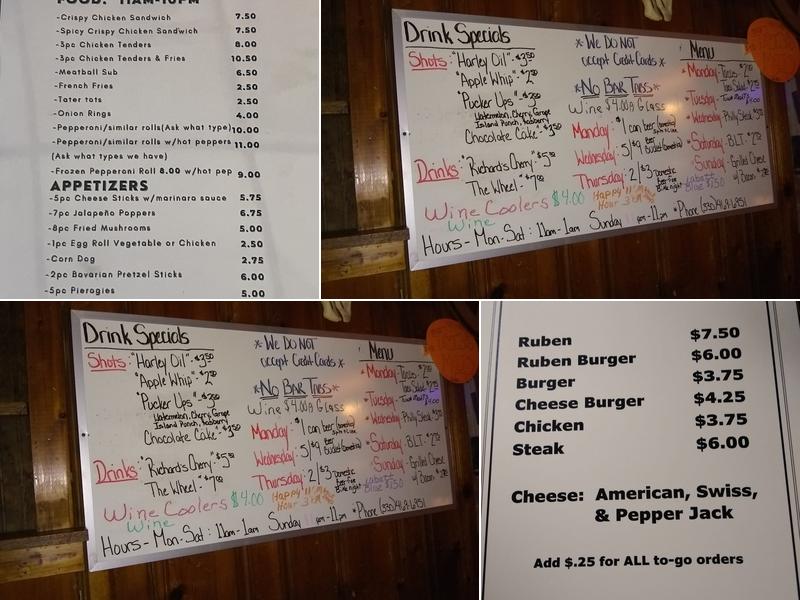 FOOD: 11AM-10PM
-Crispy Chicken Sandwich 7.50
-Spicy Crispy Chicken Sandwich 7.50
-3pc Chicken Tenders 8.00
-3pc Chicken Tenders & Fries 10.50
-Meatball Sub 6.50
-French Fries 2.50
-Tater tots 2.50
-Onion Rings 4.00
-Pepperoni/similar rolls(Ask what type) 10.00
-Pepperoni/similar rolls w/hot peppers 11.00
(Ask what types we have)
-Frozen Pepperoni Roll 8.00 w/hot pep 9.00
APPETIZERS
-5pc Cheese Sticks w/marinara sauce 5.75
-7pc Jalapeño Poppers 6.75
-8pc Fried Mushrooms 5.00
-1pc Egg Roll Vegetable or Chicken 2.50
-Corn Dog 2.75
-2pc Bavarian Pretzel Sticks 6.00
-5pc Pierogies 5.00
Drink Specials
Shots: "Harley Oil" - $3.50
"Apple Whip" - $2.50
"Pucker Ups" - $3.50
Watermelon, Cherry, Grape
Island Punch, Raspberry
Chocolate Cake" - $3.50
Drinks: "Richard's Cherry" - $5.50
The Wheel" - $7.00
Wine Coolers $4.00
Wine
* We DO NOT
accept Credit Cards *
*No BAR TABS*
Wine $4.00 A GLASS
Monday: $1 can beer
Wednesday: 5/$9 Beer Bucket (Domestic)
Thursday: 2/$3 Domestic
Happy
Hour
Labatt
Blue $1.50
Menu
Monday - Tacos
Taco Salad
Tuesday -
Wednesday Philly Steak
Saturday - B.L.T.
Sunday - Grilled Cheese
w/ Bacon
Hours - Mon-Sat: 11am-1am Sunday pm-11pm *Phone
Drink Specials
Shots: "Harley Oil" - $3.50
"Apple Whip" - $2.50
"Pucker Ups" - $3.50
Watermelon, Cherry, Grape
Island Punch, Raspberry
Chocolate Cake" - $3.50
Drinks: "Richard's Cherry" - $5.50
The Wheel" - $7.00
Wine Coolers $4.00
Wine
* We DO NOT
accept Credit Cards *
*No BAR TABS*
Wine $4.00 A GLASS
Monday: $1 can beer
Wednesday: 5/$9 Beer Bucket (Domestic)
Thursday: 2/$3 Domestic
Happy
Hour
Labatt
Blue $1.50
Menu
Monday - Tacos
Taco Salad
Tuesday -
Wednesday Philly Steak
Saturday - B.L.T.
Sunday - Grilled Cheese
w/ Bacon
Hours - Mon-Sat: 11am-1am Sunday pm-11pm *Phone
Ruben $7.50
Ruben Burger $6.00
Burger $3.75
Cheese Burger $4.25
Chicken $3.75
Steak $6.00
Cheese: American, Swiss,
& Pepper Jack
Add $.25 for ALL to-go orders